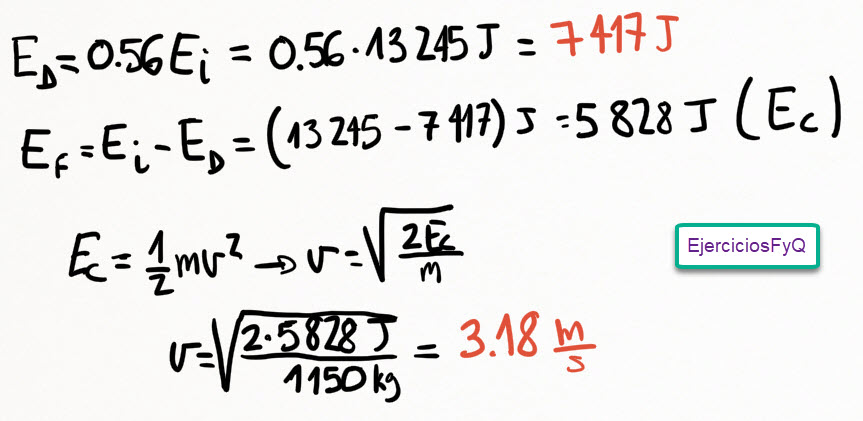 E_D = 0.56 E_i = 0.56 · 13 245 J = 7 417 J
E_F = E_i − E_D = (13 245 − 7 417) J = 5 828 J (E_c)
E_c = 1/2 mv² → v = √(2E_c/m)
EjerciciosFyQ
v = √(2·5828 J/1150 kg) = 3.18 m/s